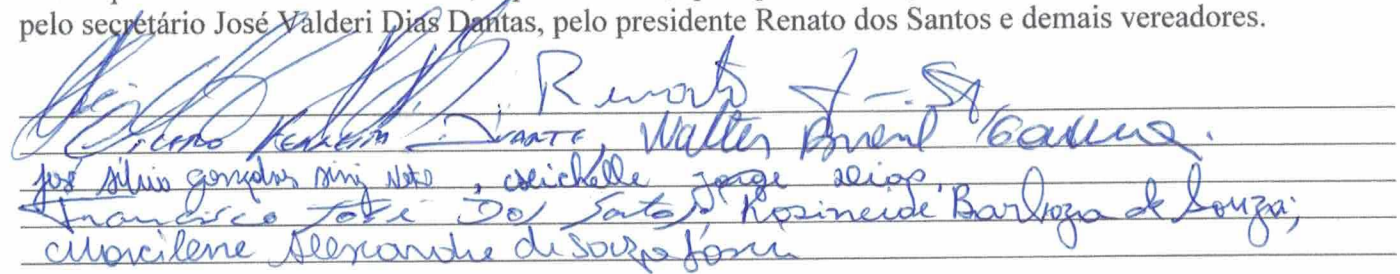 pelo secretário José Valderi Dias Dantas, pelo presidente Renato dos Santos e demais vereadores.
Renato
Cicero Ferreira Duarte, Walter
José Silvio Gonçalves Diniz Neto, Michelle Jorge Dias,
Francisco José Dos Santos, Rosineide Barboza de Souza;
Marcilene Alexandre de Souza